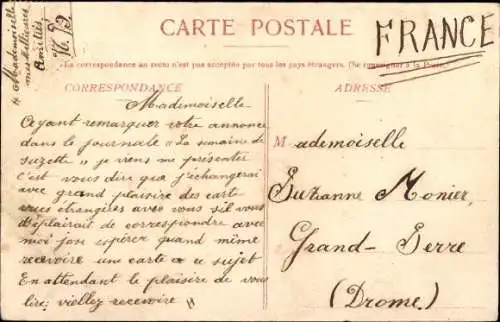 CARTE POSTALE
FRANCE
La correspondance au recto n'est pas acceptée par tous les pays étrangers. (Se renseigner à la Poste.)
CORRESPONDANCE
ADRESSE
Mademoiselle
Ayant remarquer votre annonce
dans le journale "La semaine de
suzette" je viens me présenter
c'est vous dire que j'échangerai
avec grand plaisire des cart-
eries étrangères avec vous s'il vous
déplairait de correspondre avec
moi jose espérer quand même
recevoire une carte a ce sujet
En attendant le plaisire de vous
lire; viellez recevoire
Mademoiselle
mes meilleures
Amitiés
Mademoiselle
Suzianne Monier,
Grand-Serre
(Drome)